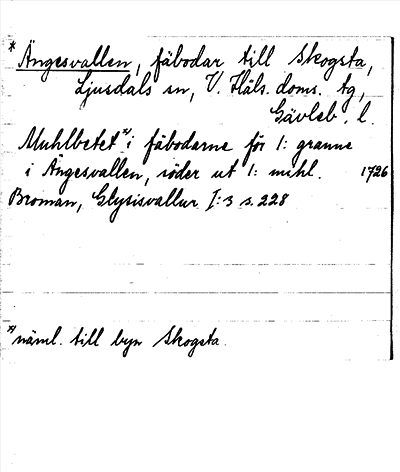 * Ängesvallen, fäbodar till Skogsta,
Ljusdals sn, V. Häls. doms. tg,
Gävleb. l.
Muhlbetet *) i fäbodarne för 1: granne
i Ängesvallen, söder ut 1: mihl. 1726
Broman, Glysisvallur I:3 s. 228
*) näml. till byn Skogsta.